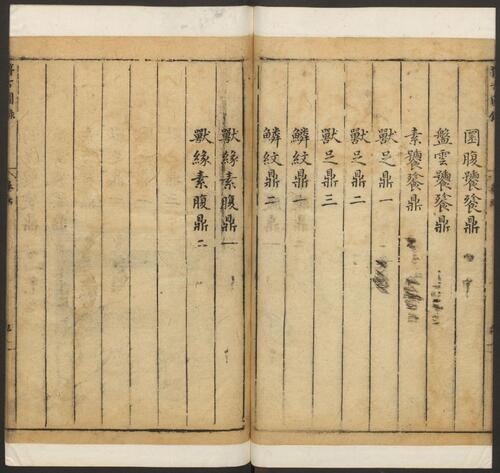 圜腹饕餮鼎
盤雲饕餮鼎
素饕餮鼎
獸足鼎一
獸足鼎二
獸足鼎三
鱗紋鼎一
鱗紋鼎二
獸緣素腹鼎一
獸緣素腹鼎二